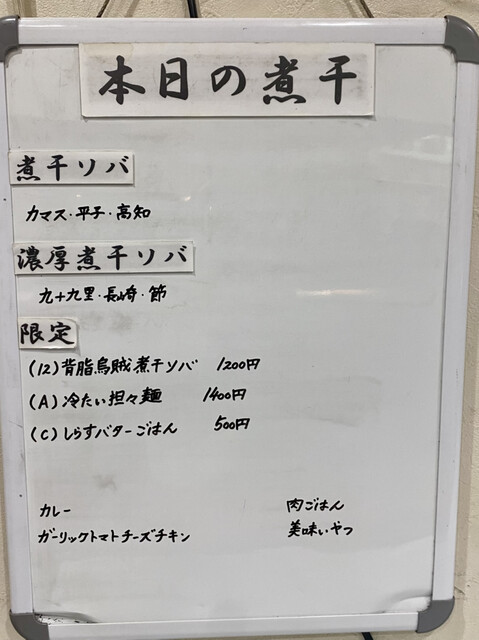 本日の煮干
煮干ソバ
カマス・平子・高知
濃厚煮干ソバ
九十九里・長崎・節
限定
(12)背脂烏賊煮干ソバ 1200円
(A)冷たい担々麺 1400円
(C)しらすバターごはん 500円
カレー 肉ごはん
ガーリックトマトチーズチキン 美味いやつ